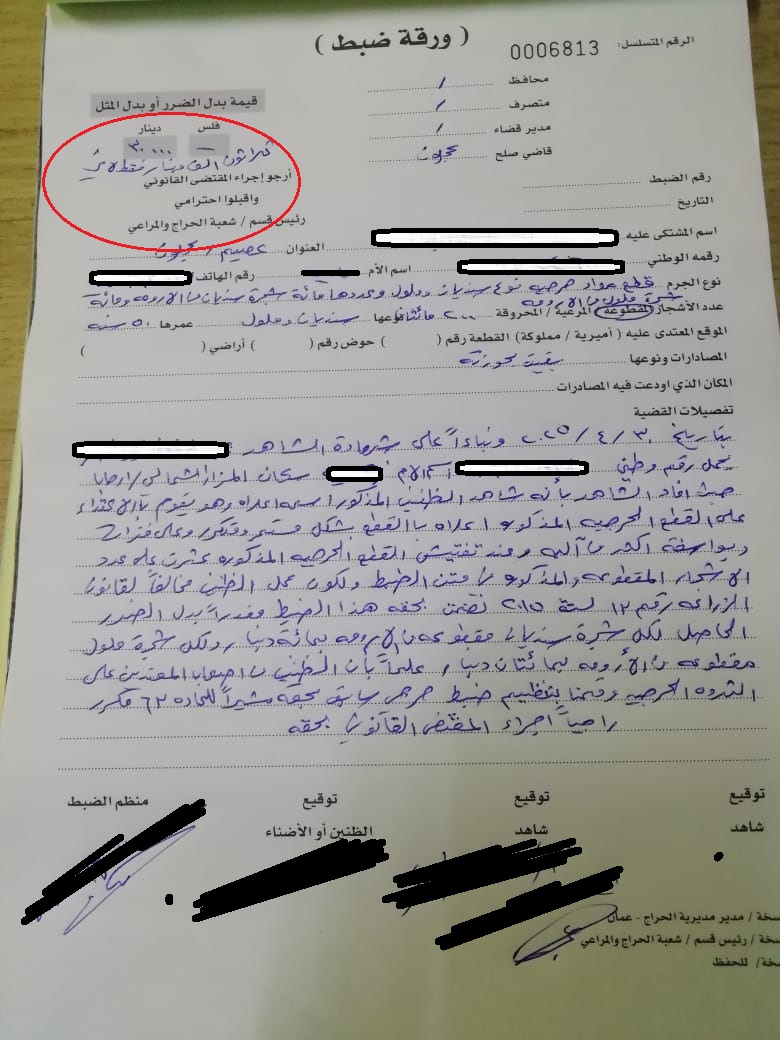 ( ورقة ضبط )
الرقم المتسلسل: 0006813
محافظ /
متصرف /
مدير قضاء /
قاضي صلح عجلون
قيمة بدل الضرر أو بدل المثل
فلس دينار
— ٣٠٠٠٠
ثلاثون الف دينار فقط لاغير
أرجو إجراء المقتضى القانوني
واقبلوا احترامي
رئيس قسم / شعبة الحراج والمراعي
رقم الضبط
التاريخ
اسم المشتكى عليه العنوان / عجلون
رقمه الوطني اسم الأم رقم الهاتف
نوع الجرم قطع مواد حرجيه نوع سنديان وملول وعددها مائة شجرة سنديان من الارومه ومائة
شجرة ملول من الارومه
عدد الأشجار المقطوعة / المرعية / المحروقة ٢٠٠ مائتان نوعها سنديان وملول عمرها ٥٠ سنه
الموقع المعتدى عليه ( أميرية / مملوكة ) القطعة رقم ( ) حوض رقم ( ) أراضي ( )
المصادرات ونوعها بقيت بحوزته
المكان الذي اودعت فيه المصادرات
تفصيلات القضية
بتاريخ ٣٠ / ٤ / ٢٠٢٥ وبناءاً على شهادة الشاهد
يحمل رقم وطني اسم الام سكان المزار الشمالي / ارحابا
حيث افاد الشاهد بأنه شاهد الظنين المذكور اسمه اعلاه وهو يقوم بالاعتداء
على القطع الحرجيه المذكوره اعلاه بالقطع بشكل مستمر ومتكرر وعلى فترات
وبواسطة اكثر من آليه وعند تفتيش القطع الحرجيه المذكوره عثرت على عدد
الاشجار المقطوعه والمذكوره في متن الضبط ولكون عمل الظنين مخالفاً لقانون
الزراعه رقم ١٣ لسنة ٢٠١٥ نظمت بحقه هذا الضبط مقدراً بدل الضرر
الحاصل لكل شجرة سنديان مقطوعه من الارومه بمائة دينار ولكل شجرة ملول
مقطوعه من الأرومه بمائتان دينار علماً بأن الظنين من اصحاب المعتدين على
الثروه الحرجيه وقمنا بتنظيم ضبط حرجي سابق بحقه مشيراً للماده ٦٢ مكرر
راجياً اجراء المقتضى القانوني بحقه
توقيع توقيع توقيع منظم الضبط
شاهد شاهد الظنين أو الأضناء
سخة / مدير مديرية الحراج - عمان
سخة / رئيس قسم / شعبة الحراج والمراعي
سخة / للحفظ